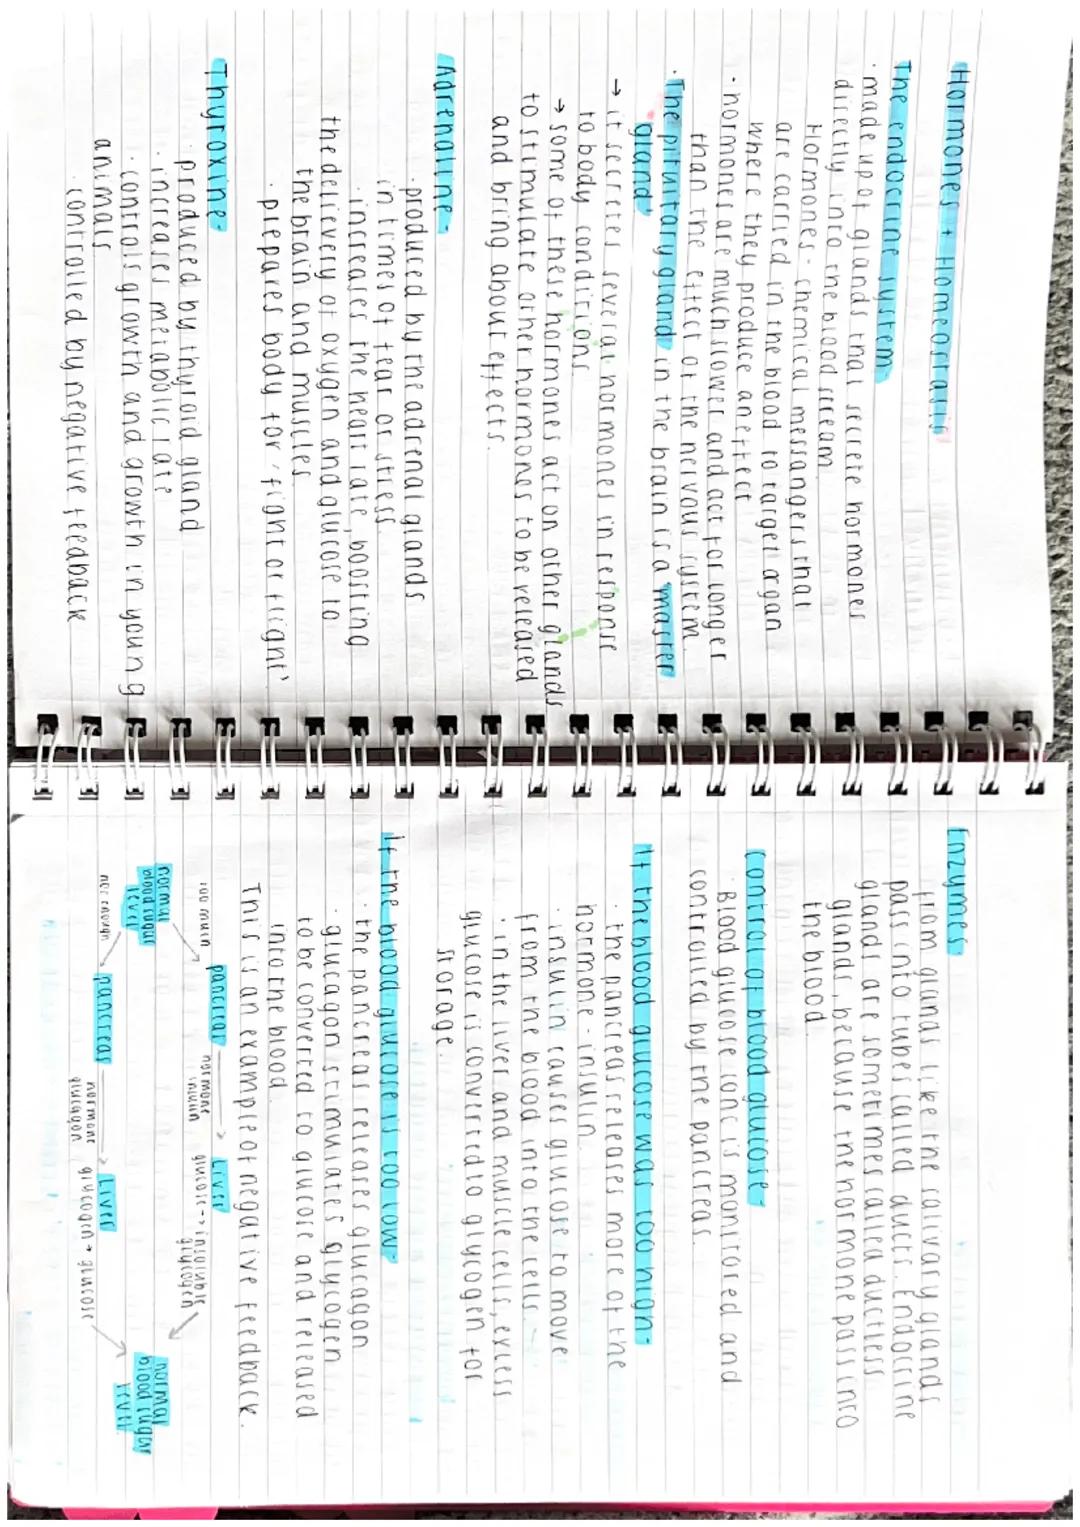 Hormones + Homeostasis
The endocrine system
· made up of glands that secrete hormones
directly into the blood stream
Hormones - chemical messangers that
are carried in the blood to target organ
where they produce an effect
· hormones are much slower and act for longer
than the effect of the nervous system.
· The pituitary gland in the brain is a 'master
gland'
→ it secretes several hormones in response
to body conditions
→ some of these hormones act on other glands
to stimulate other hormones to be released
and bring about effects.
Adrenaline-
· produced by the adrenal glands
in times of fear or stress.
· increases the heart rate, boosting
the delievery of oxygen and glucose to
the brain and muscles
· prepares body for 'fight or flight'
Thyroxine-
· produced by thyroid gland
· increases metabolic rate
· controls growth and growth in young
animals
· controlled by negative feedback
Enzymes
from glands like the salivary glands
pass into tubes called ducts. Endocrine
glands are sometimes called ductless
glands, because the hormone pass into
the blood
Control of blood glucose-
· Blood glucose conc is monitored and
controlled by the pancreas.
If the blood glucose was too high-
· the pancreas releases more of the
hormone - insulin.
· insulin causes glucose to move
from the blood into the cells.
· in the liver and muscle cells, excess
glucose is converted to glycogen for
storage.
If the blood glucose is too low-
· the pancreas releases glucagon
· glucagon stimulates glycogen
to be converted to glucose and released
into the blood.
This is an example of negative feedback.
too much
pancreas
hormone
insulin
Liver
glucose → insoluble
glycogen
normal
blood sugar
level
normal
blood sugar
level
not enough
pancreas
hormone
glucagon
Liver
glycogen → glucose